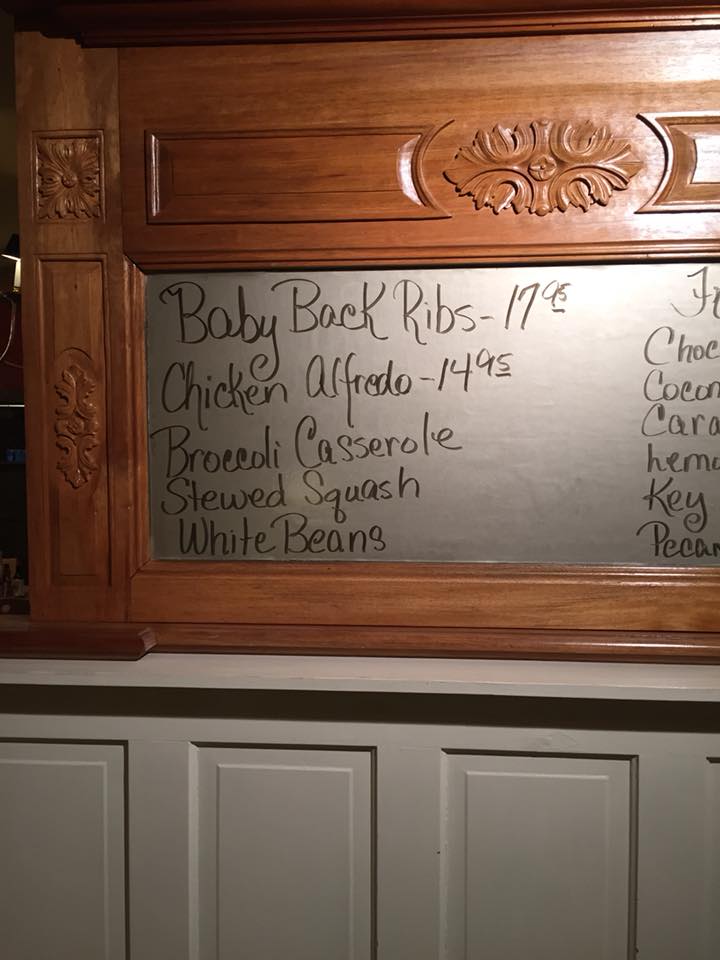 Baby Back Ribs - 17 95
Chicken Alfredo - 14 95
Broccoli Casserole
Stewed Squash
White Beans
Choc
Cocon
Cara
Key
Pecan